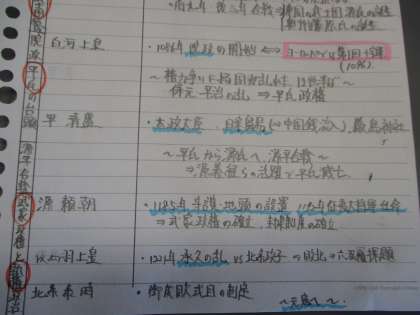 院政
白河上皇
・1086年 院政の開始 ⇔
ヨーロッパでは第1回十字軍
(10%)
平氏の台頭
保元・平治の乱 ⇒ 平氏政権
平 清盛
・太政大臣 日宋貿易(⇒中国銭流入)、厳島神社
源平合戦
〜平氏から源氏へ、源平合戦〜
⇒源義経らの活躍で平氏滅亡
武家政権と
源 頼朝
・1185年 守護・地頭の設置 1192年 征夷大将軍任命
⇒武家政権の確立、封建制度の確立
後鳥羽上皇
・1221年 承久の乱 vs 北条政子 ⇒敗北⇒六波羅探題
執権政治
北条泰時
・御成敗式目の制定
〜元寇へ〜